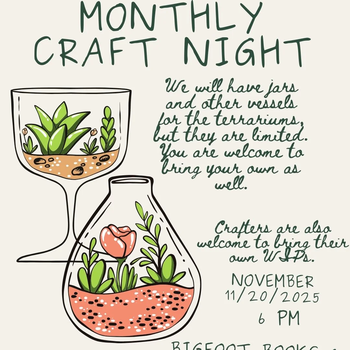 MONTHLY
CRAFT NIGHT
We will have jars
and other vessels
for the terrariums,
but they are limited.
You are welcome to
bring your own as
well.
Crafters are also
welcome to bring their
own WIPs.
NOVEMBER
11/20/2025
6 PM
BIGFOOT BOOKS